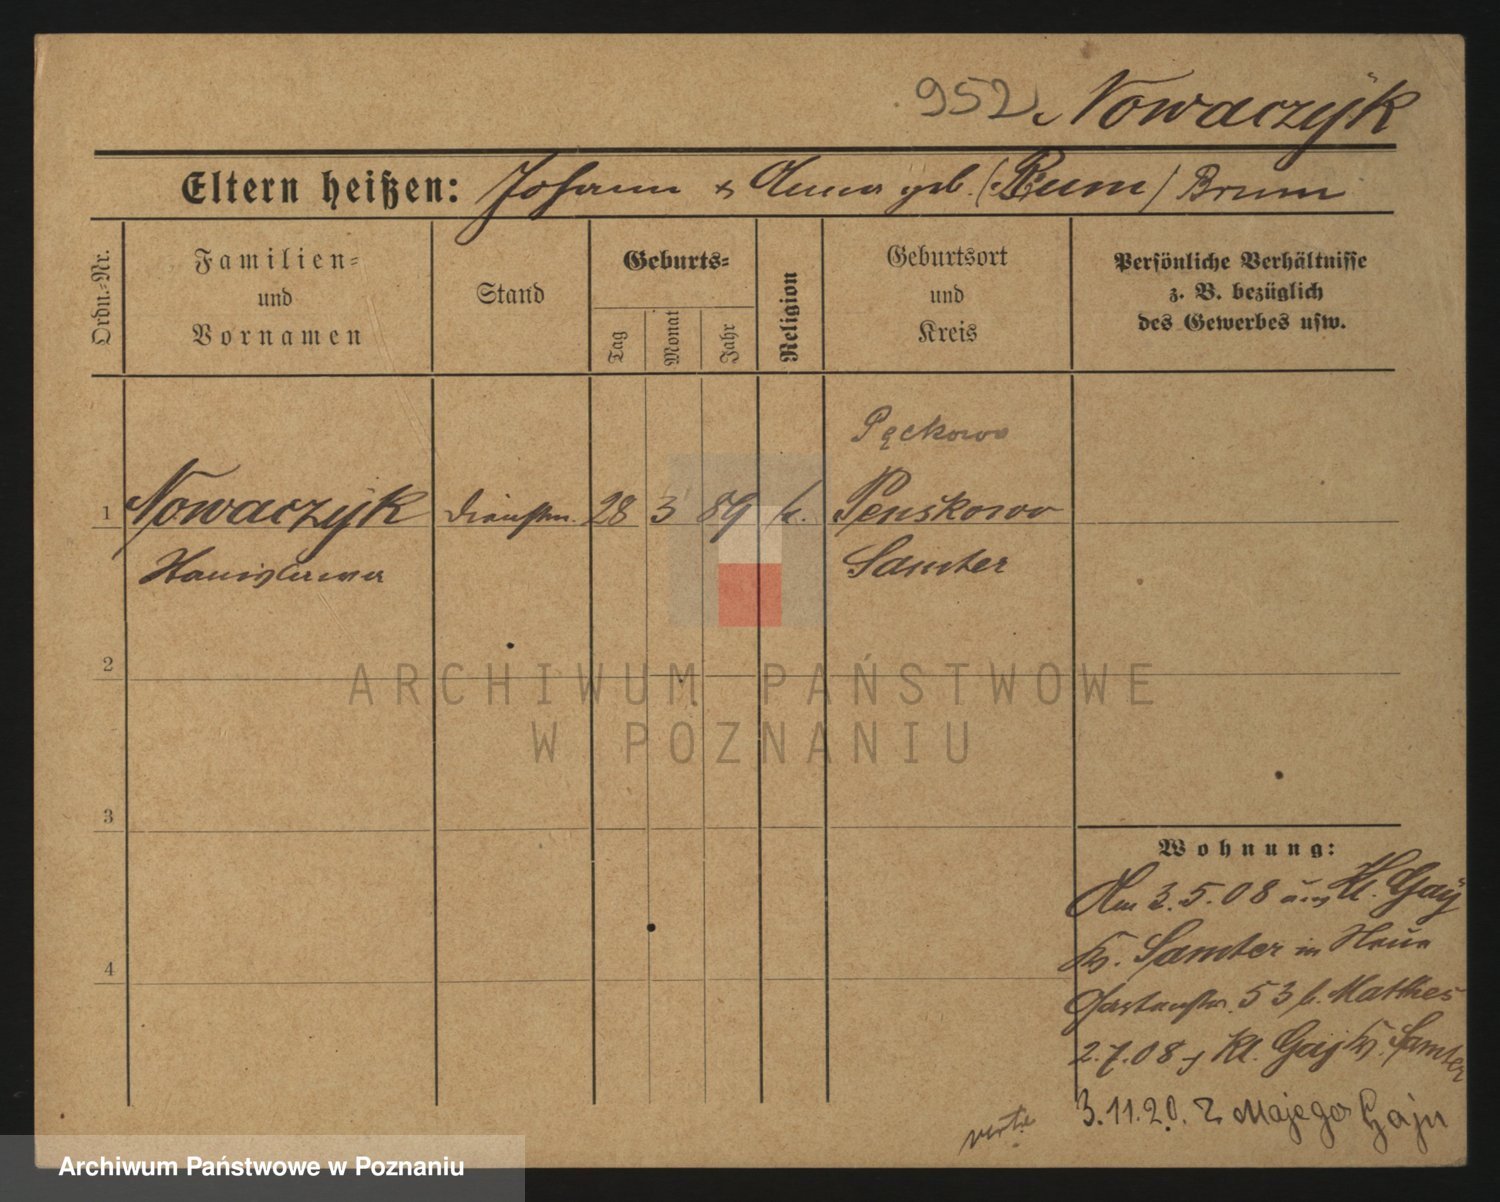 952 Nowaczyk
Eltern heißen: Johann & Anna geb. (Rum) Brum
Ordn.-Nr.
Familien-
und
Vornamen
Stand
Geburts-
Tag
Monat
Jahr
Religion
Geburtsort
und
Kreis
Persönliche Verhältnisse
z. B. bezüglich
des Gewerbes usw.
Pęckowo
1 Nowaczyk Dienstm. 28 3 89 k. Penskowo
Stanislawa Samter
2
ARCHIWUM PAŃSTWOWE
W POZNANIU
3
Wohnung:
Am 3.5.08 aus Kl. Gay
Kr. Samter in
4
Gartenstr. 53 b. Matthes
2.7.08 n. Kl. Gay Kr. Samter
3.11.20. z Małego Gaju
verte
Archiwum Państwowe w Poznaniu